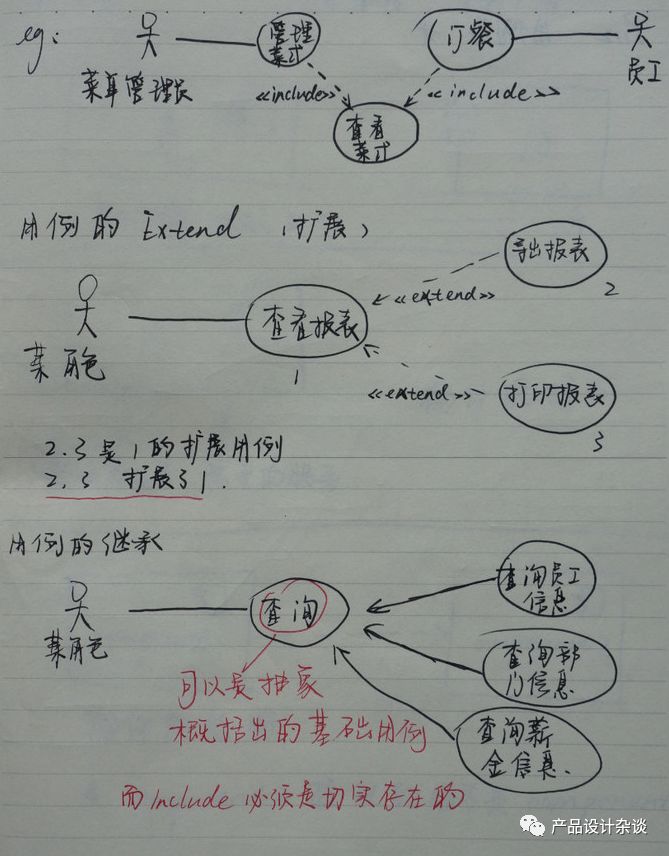 eg:
管理
菜式
订餐
菜单管理员
<<include>>
<<include>>
员工
查看
菜式
用例的 Extend (扩展)
导出报表
2
<<extend>>
查看报表
1
某角色
<<extend>>
打印报表
3
2.3是1的扩展用例
2.3 扩展了1.
用例的继承
某角色
查询
查询员工
信息
查询部
门信息
查询薪
金信息.
可以是抽象
概括出的基础用例
而Include必须是切实存在的
产品设计杂谈